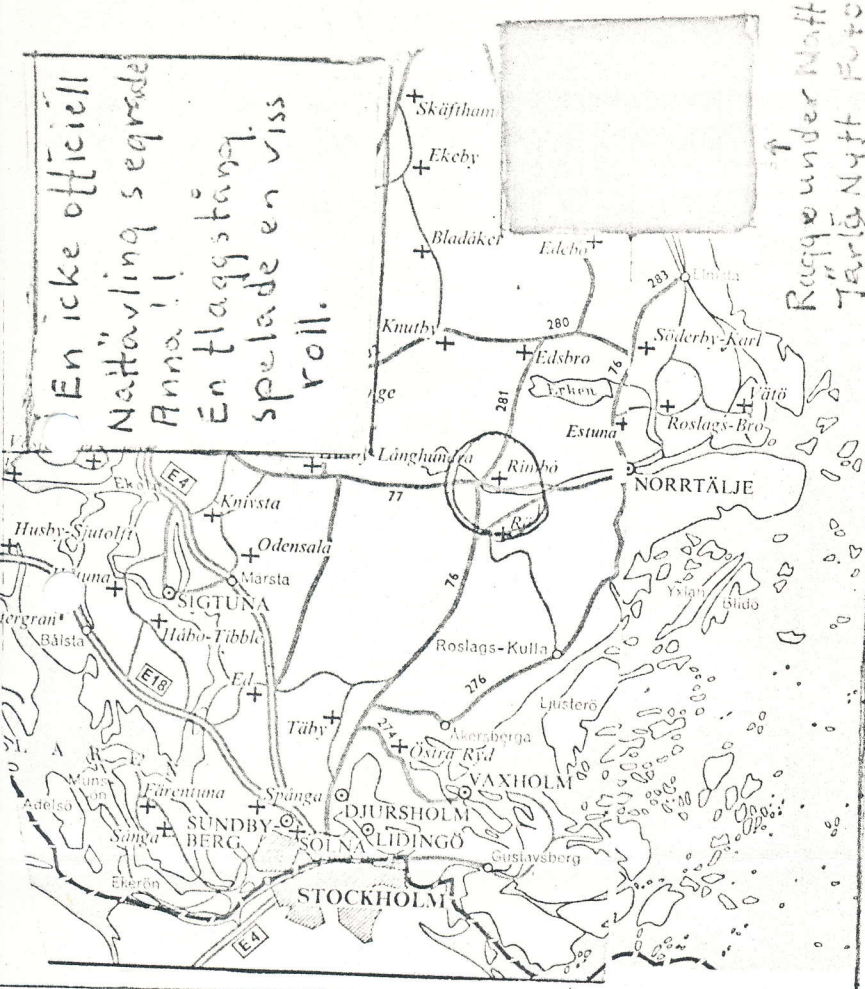 En icke officiell
Nattävling segrade
Anna!!
En flaggstång
spelade en viss
roll.
Raggeunder Natt
Järla Nytt Foto
Skäftham
Ekeby
Bladåker
Edebo
283
Knutby
280
Söderby-Karl
Edsbro
76
Erken
281
Vätö
Roslags-Bro
Estuna
Långhundra
Rimbo
E4
77
NORRTÄLJE
Knivsta
Husby-Sjutolft
Odensala
Märsta
SIGTUNA
76
Yxlan
Blidö
Håbo-Tibble
Bålsta
Roslags-Kulla
E18
Ed
276
Ljusterö
Täby
Åkersberga
274
Östra Ryd
VAXHOLM
Adelsö
Färentuna
Spånga
DJURSHOLM
Sånga
SUNDBY-
BERG
SOLNA
LIDINGÖ
Gustavsberg
Ekerön
STOCKHOLM
E4